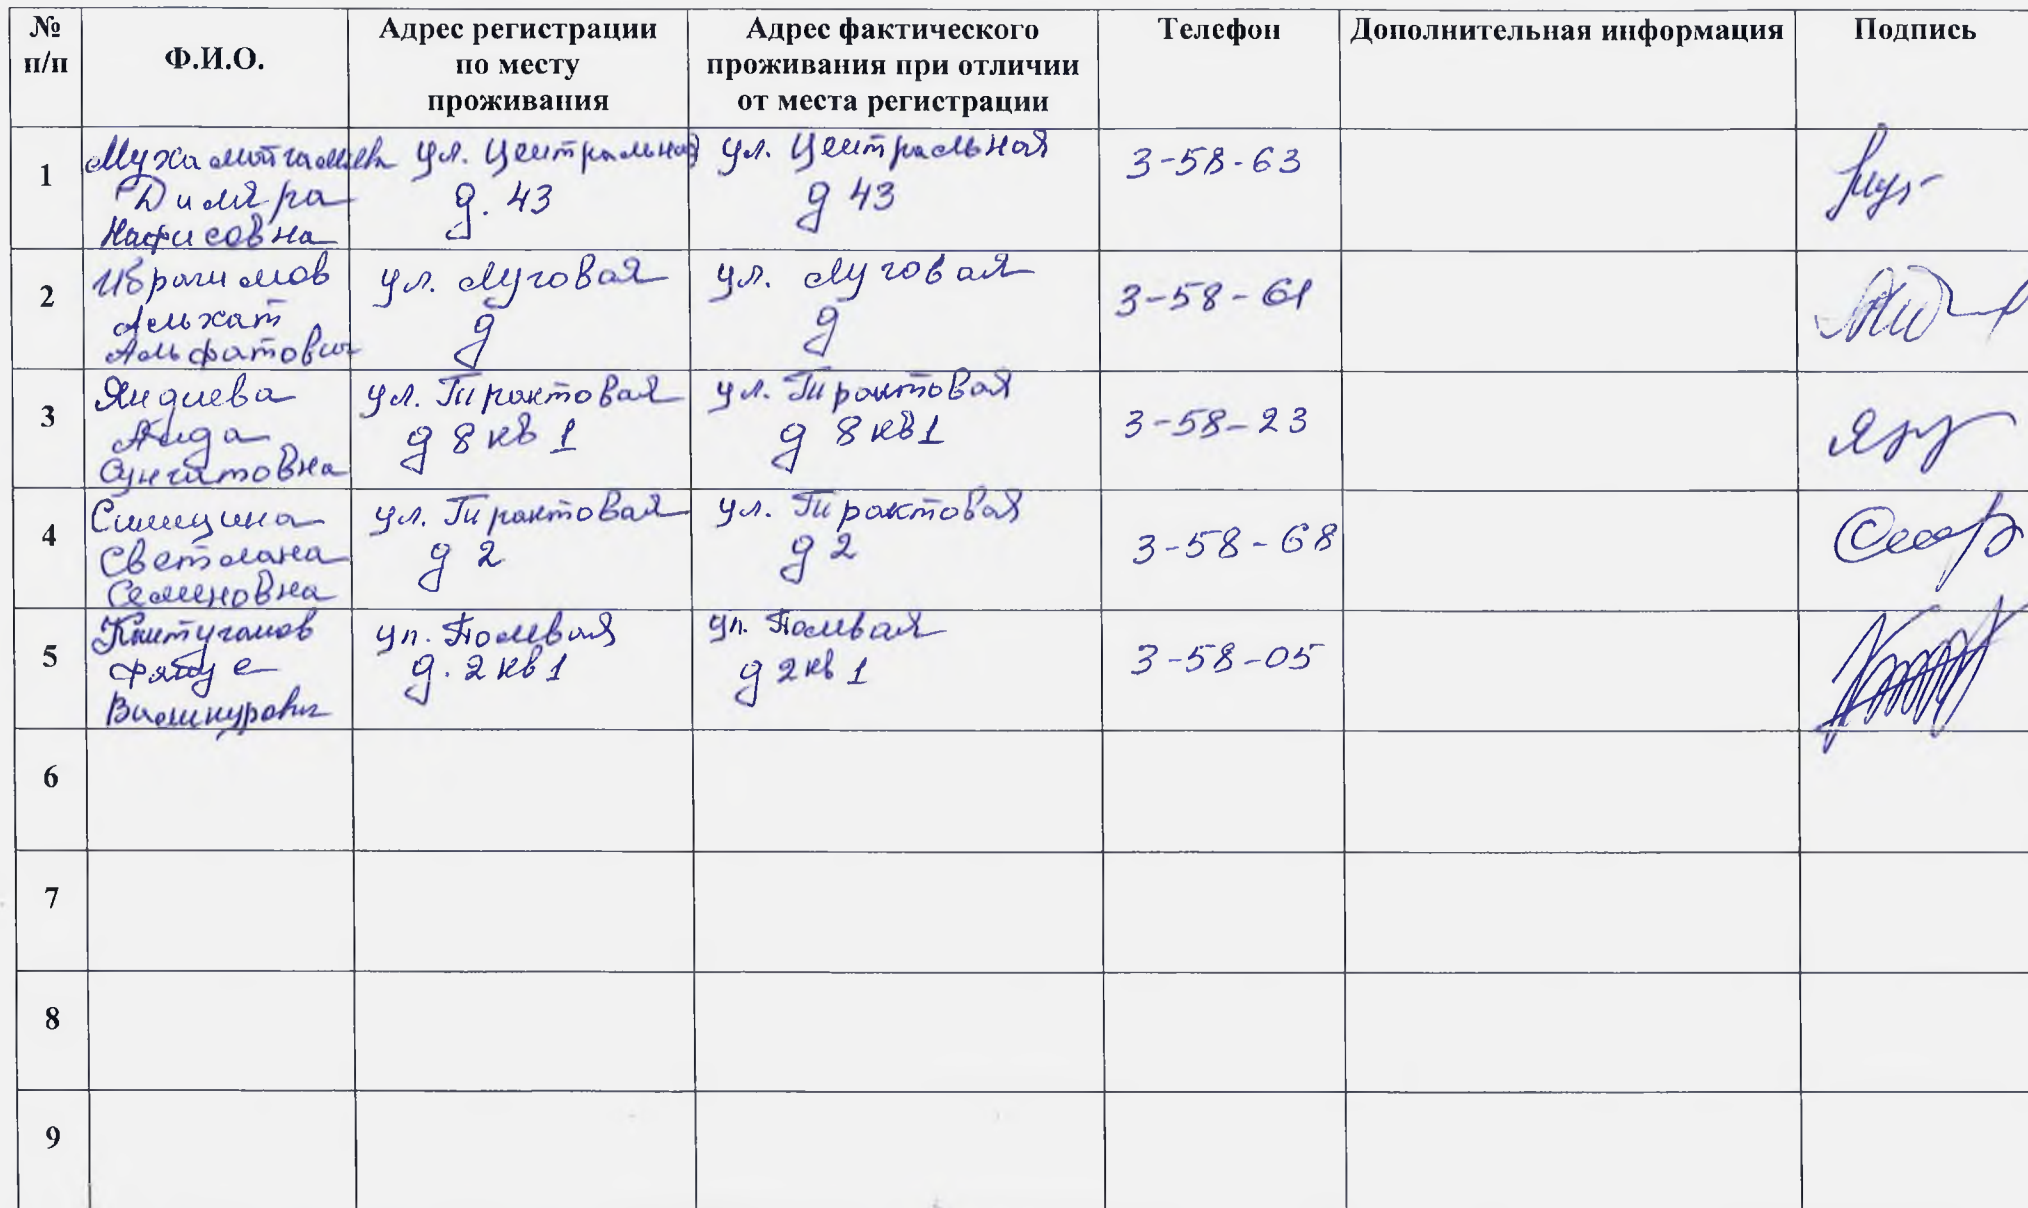 № п/п
Ф.И.О.
Адрес регистрации по месту проживания
Адрес фактического проживания при отличии от места регистрации
Телефон
Дополнительная информация
Подпись
1
Диляра
Нафисовна
ул. Центральная
д. 43
ул. Центральная
д 43
3-58-63
2
Ибрагимов
Альхат
Альфатович
ул. Луговая
д
ул. Луговая
д
3-58-61
3
Яндиева
Аида
ул. Трактовая
д 8 кв 1
ул. Трактовая
д 8 кв 1
3-58-23
4
Светлана
Семеновна
ул. Трактовая
д 2
ул. Трактовая
д 2
3-58-68
5
ул. Полевая
д. 2 кв 1
ул. Полевая
д 2 кв 1
3-58-05
6
7
8
9